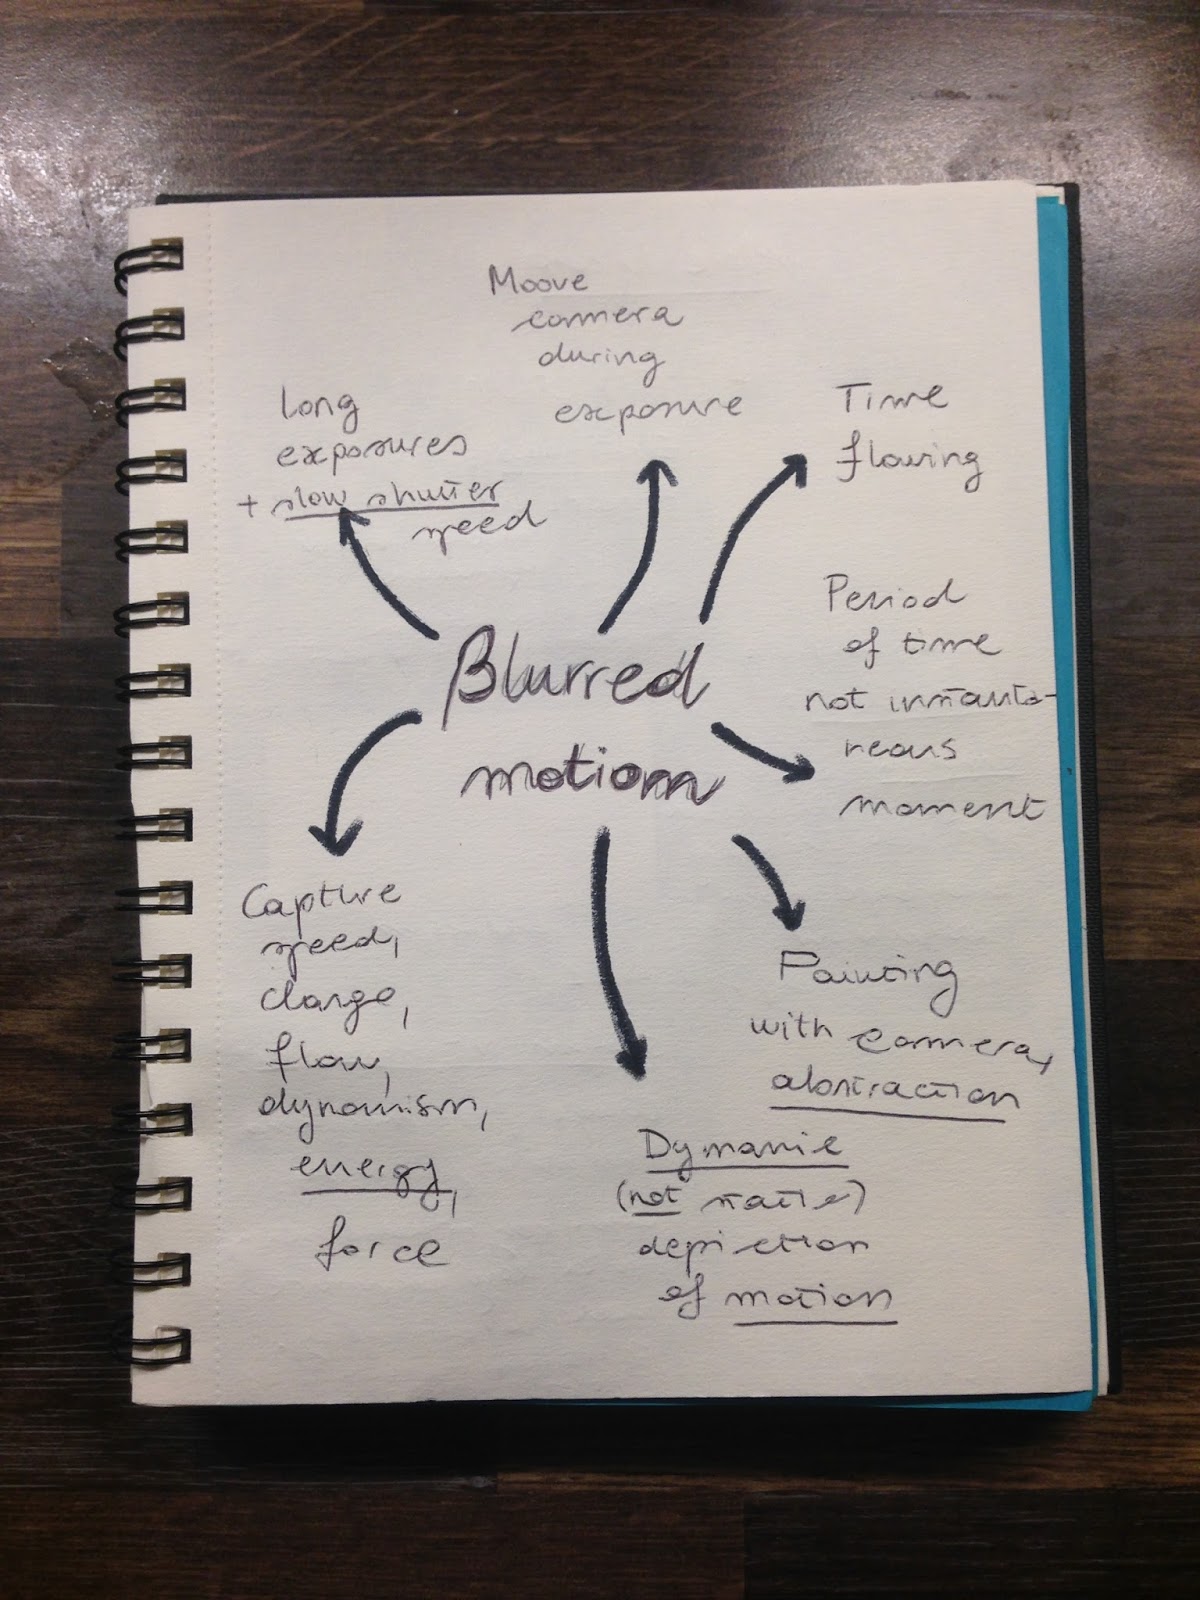 Moove
camera
during
exposure
Long
exposures
+ slow shutter
speed
Time
flowing
Blurred
motion
Period
of time
not instanta-
neous
moment
Capture
speed,
change,
flow,
dynamism,
energy,
force
Painting
with camera,
abstraction
Dymanic
(not static)
depiction
of motion